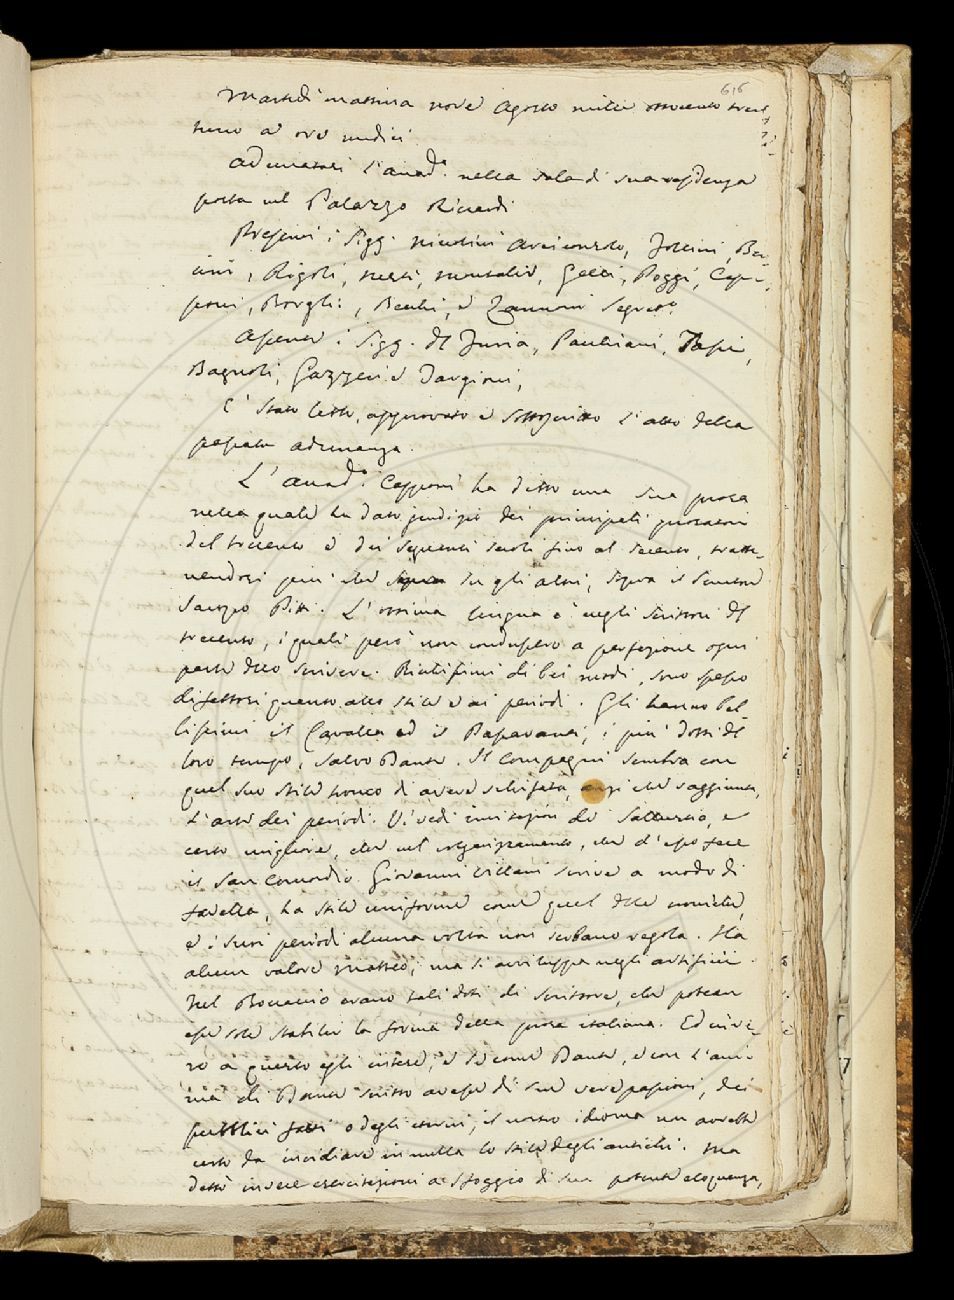 616
Martedì mattina nove Agosto mille ottocento trent
tuno a ore undici
Adunatasi l'Accad.ª nella sala di sua residenza
posta nel Palazzo Riccardi
Presenti i Sigg. Niccolini Arciconsolo, Follini, Ben
cini, Rigoli, Nesti, Montalvi, Gelli, Poggi, Cap-
poni, Borghi, Becchi, e Zannoni Segret.º
Assenti i Sigg. Del Furia, Pauchiani,
Bagnoli, Gazzeri e Targioni,
È stato letto, approvato e sottoscritto l'atto della
passata adunanza.
L'Accad.º Capponi ha detto una sua prosa
nella quale ha dato giudizio dei principali prosatori
del trecento e dei seguenti secoli fino al secento, tratte-
nendosi più che sopra gli altri, sopra il Senatore
Pitti. L'ottima lingua è negli scrittori del
trecento, i quali però non condussero a perfezione ogni
parte dello scrivere. Ricchissimi di bei modi, sono spesso
difettosi quanto allo stile e ai periodi. Gli hanno bel
lissimi il Cavalca ed il Passavanti, i più dotti del
loro tempo, salvo Dante. Il Compagni sembra con
quel suo stile tronco di avere schifata, anzi che raggiunta,
l'arte dei periodi. Vi vedi imitazion di Sallustio, e
certo migliore, che nel volgarizzamento, che d'esso fece
il San Concordio. Giovanni Villani scrive a modo di
favella, ha stile uniforme come quel delle cronache,
e i suoi periodi alcuna volta non serbano regola. Ha
alcun valore Matteo; ma si avviluppa negli artifizii.
Nel Boccaccio erano tali doti di scrittore, che potean
esse sole stabilir la forma della prosa italiana. Ed inve-
ro a questo egli intese; e se come Dante, e con l'ani-
ma di Dante scritto avesse di sue vere passioni, dei
pubblici fatti o degli esterni; il nostro idioma non avrebbe
certo da invidiare in nulla lo stile degli antichi. Ma
dette invece esercitazioni a sfoggio di sua potente eloquenza,